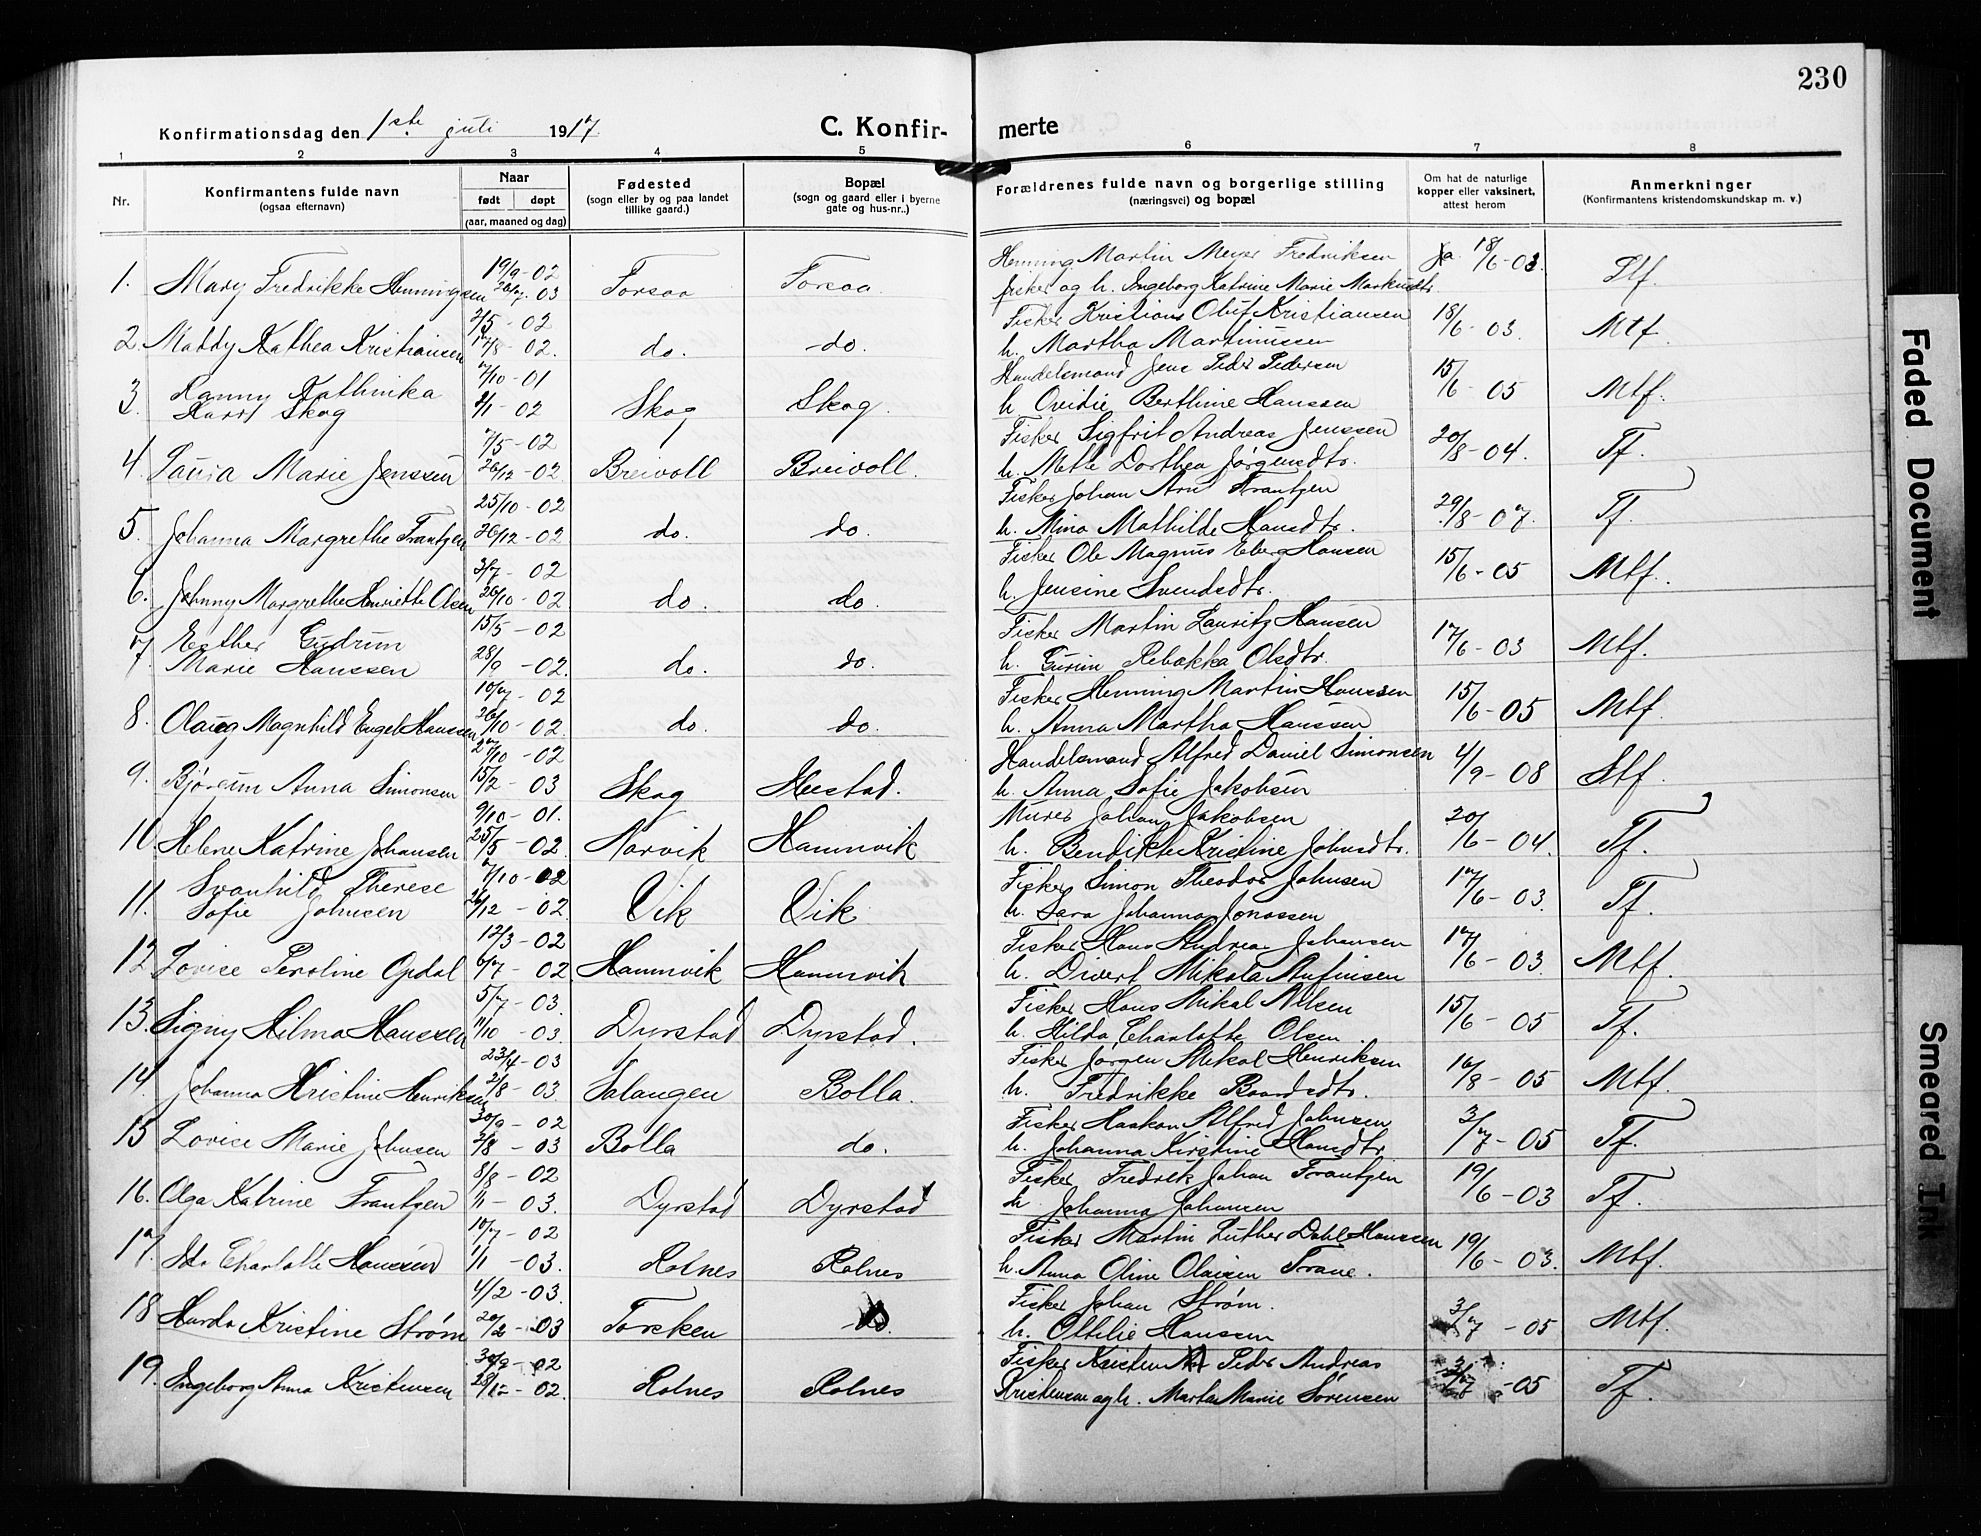 230
Konfirmationsdag den 1ste juli 1917.
C. Konfir- merte
1 2 3 4 5 6 7 8
Nr.
Konfirmantens fulde navn
(ogsaa efternavn)
Naar
født døpt
(aar, maaned og dag)
Fødested
(sogn eller by og paa landet
tillike gaard.)
Bopæl
(sogn og gaard eller i byerne
gate og hus-nr..)
Forældrenes fulde navn og borgerlige stilling
(næringsvei) og bopæl
Om hat de naturlige
kopper eller vaksinert,
attest herom
Anmerkninger
(Konfirmantens kristendomskundskap m. v.)
1. Mary Fredrikke Henningsen 19/9-02 03 Forsaa Forsaa
Henning Martin Meyer Fredriksen
fisker og h. Ingeborg Katrine Marie Markusdtr. Ja 18/6-03. Stf.
2. Maddy Kathea Kristiansen 2/5-02 17/8-02. do. do.
Fisker Kristian Oluf Kristiansen
h. Martha Martinussen 18/6-03. Mtf.
3. Ranny Kathinka
Harst Skog 7/10-01 2/1-02 Skog Skog.
Handelsmand Jens Peder Pedersen
h. Ovidie Berthine Hanssen 15/6 05 Mtf.
4. Laura Marie Jenssen 7/5-02 26/12-02 Breivoll Breivoll.
Fisker Sigfrit Andreas Jenssen
h. Mette Dorthea Jørgensdtr. 20/8-04. Tf.
5. Johanna Margrethe Frantzen 25/10-02 26/12-02 do. do.
Fisker Johan Arn Frantzen
h. Mina Mathilde Hansdtr. 29/8-07. Tf.
6. Johnny Margrethe Henriette Olsen 3/7-02 26/10-02 do. do.
Fisker Ole Magnus Eberg Hansen
h. Jensine Svendsdtr. 15/6-05 Mtf.
7. Esther Gudrun
Marie Hanssen 15/5-02 28/9-02. do. do.
Fisker Martin Lauritz Hansen
h. Gurin Rebekka Olsdtr. 17/6-03 Mtf.
8. Olaug Magnhild Engel Hanssen 10/7-02 26/10-02. do. do.
Fisker Henning Martin Hanssen
h. Anna Martha Hanssen 15/6-05 Mtf.
9. Bjørgun Anna Simonsen 27/10-02 15/2-03 Skog Hestad.
Handelsmand Alfred Daniel Simonsen
h. Anna Sofie Jakobsen 4/9-08 Stf.
10. Helene Katrine Johansen 9/10-01. 25/5-02. Narvik Hamnvik
Murer Johan Jakobsen
h. Bendikte Kristine Johnsdtr. 20/6-04. Tf.
11. Svanhild Therese
Sofie Johnsen 7/10-02 26/12-02. Vik Vik
Fisker Simon Theodor Johnsen
h. Sara Johanna Jonassen 17/6-03. Tf.
12. Lovise Peroline Opdal 12/3-02 6/7-02 Hamnvik Hamnvik
Fisker Hans Andreas Johansen
h. Divert Mikola Anfinsen 17/6-03. Mtf.
13. Signy Hilma Hanssen 5/7-03. 11/10-03. Dyrstad Dyrstad.
Fisker Hans Mikal Nilsen
h. Hilda Charlotte Olsen 15/6-05 Tf.
14. Johanna Kristine Henriksen 23/4-03 2/8-03 Salangen Bolla.
Fisker Jørgen Mikal Henriksen
h. Fredrikke Baardsdtr. 16/8-05 Mtf.
15 Lovise Marie Johnsen 30/9-02 2/8-03 Bolla do.
Fisker Haakon Alfred Johnsen
h. Johanna Kirstine Hansdtr. 3/7-05 Tf.
16. Olga Katrine Frantzen 8/8-02 1/1-03. Dyrstad Dyrstad
Fisker Fredrik Johan Frantzen
h. Johanna Johansen 19/6-03 Tf.
17. Ida Charlotte Hanssen 10/7-02 1/1-03. Rolnes Rolnes
Fisker Martin Luther Dahl Hanssen
h. Anna Oline Olaisen Trane. 19/6-03. Mtf.
18 Harda Kristine Strøm 4/2-03. 20/2-03 Torsken do.
Fisker Johan Strøm.
h. Ottilie Hansen 3/7-05 Mtf.
19. Ingeborg Anna Kristensen 30/9-02 28/12-02. Rolnes Rolnes
Fisker Kristen Peder Andreas
Kristensen og h. Marta Marie Sørensen 3/7-05 Tf.
Faded Document
Smeared Ink